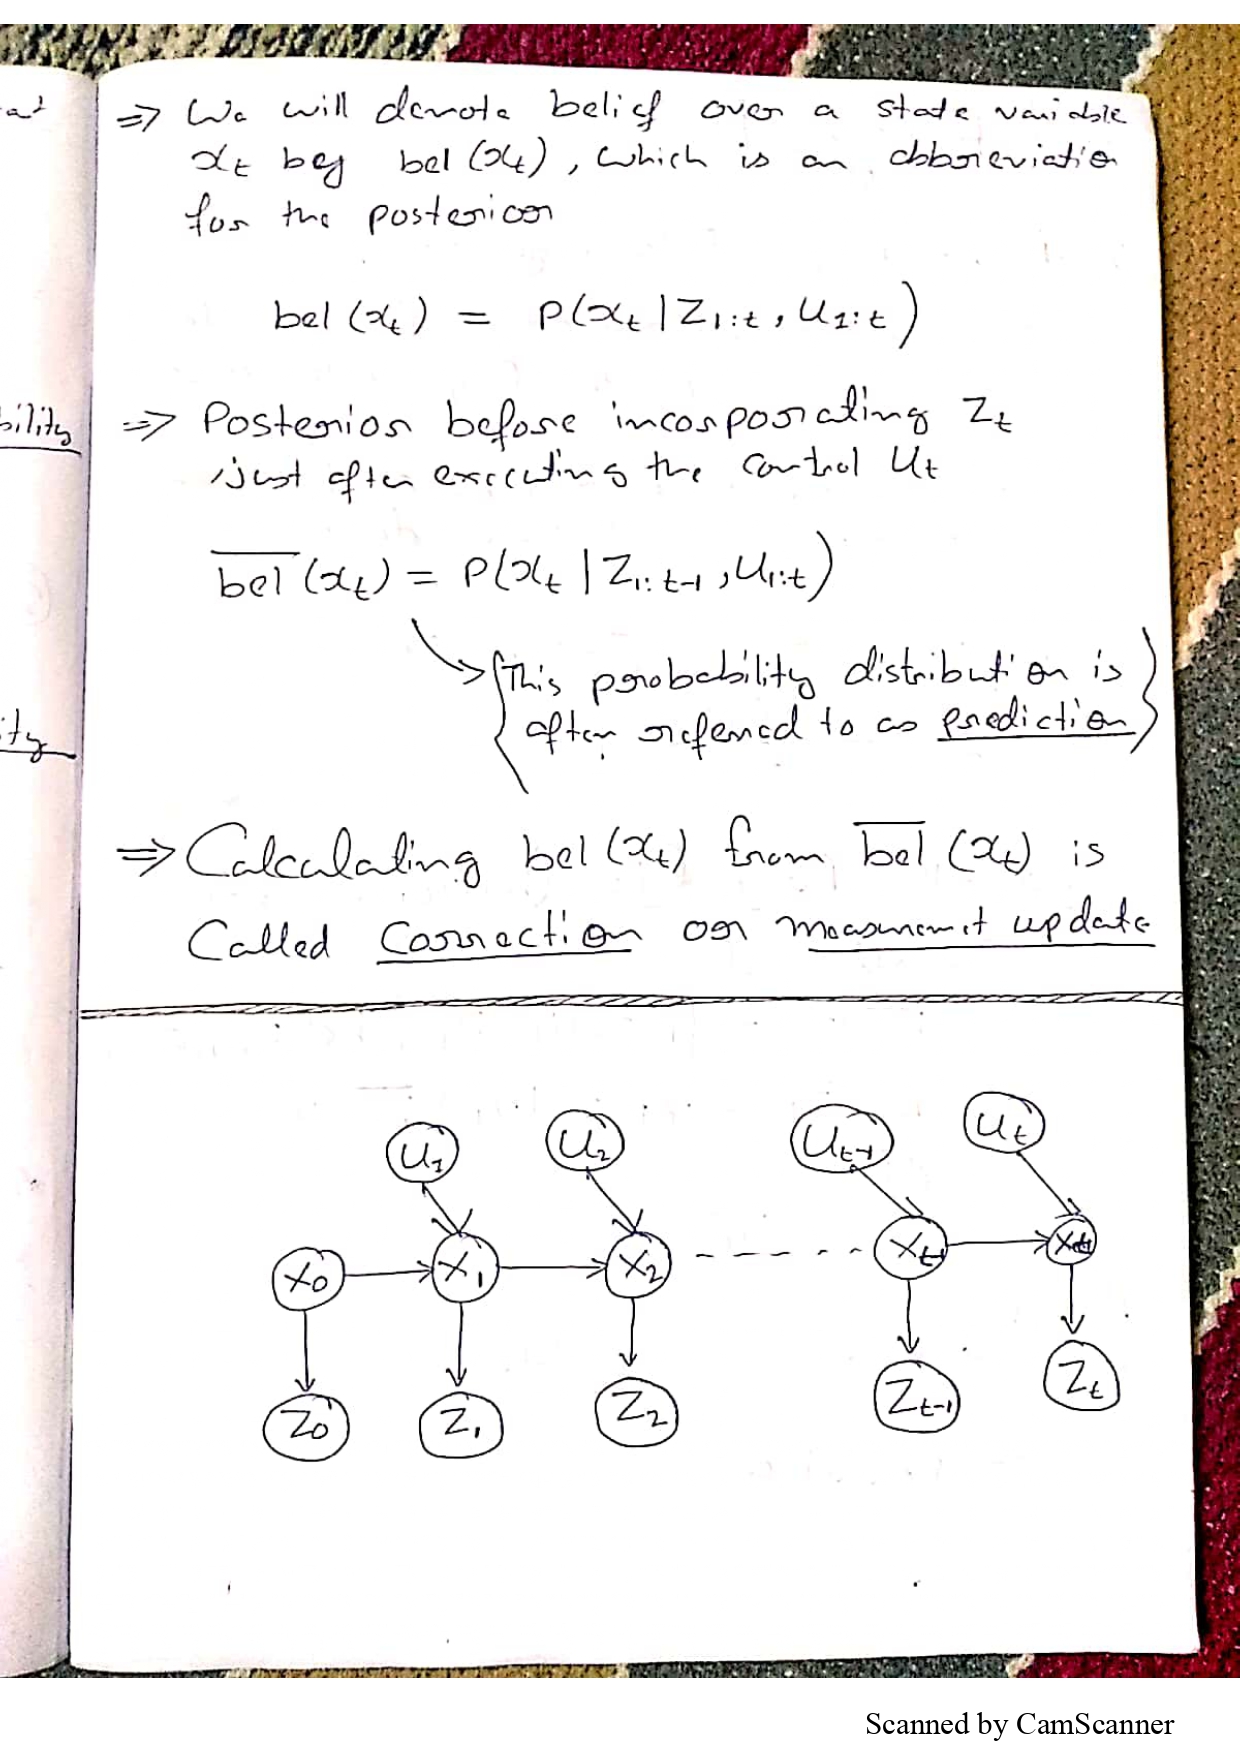 ⇒ We will denote belief over a state variable
xₜ by bel(xₜ), which is an abbreviation
for the posterior
bel(xₜ) = P(xₜ | Z₁:ₜ, U₁:ₜ)
⇒ Posterior before incorporating Zₜ
just after executing the control Uₜ
b̅e̅l̅(xₜ) = P(xₜ | Z₁:ₜ₋₁, U₁:ₜ)
{This probability distribution is
often referred to as prediction}
⇒ Calculating bel(xₜ) from b̅e̅l̅(xₜ) is
Called Correction or measurement update
U₁ U₂ Uₜ₋₁ Uₜ
X₀ X₁ X₂ - - - - Xₜ₋₁
Z₀ Z₁ Z₂ Zₜ₋₁ Zₜ
bility
ity
Scanned by CamScanner